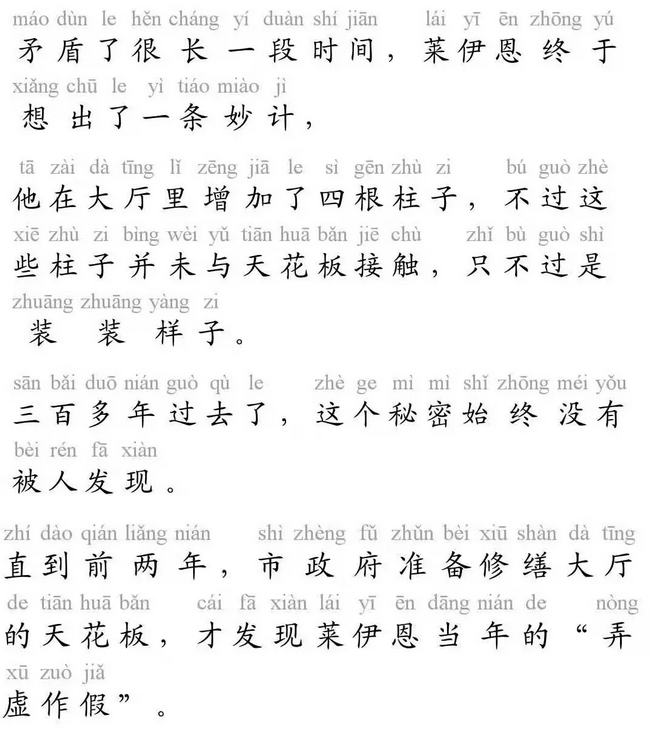 máo dùn le hěn cháng yí duàn shí jiān lái yī ēn zhōng yú
矛盾了很长一段时间，莱伊恩终于
xiǎng chū le yì tiáo miào jì
想出了一条妙计，
tā zài dà tīng lǐ zēng jiā le sì gēn zhù zi bú guò zhè
他在大厅里增加了四根柱子，不过这
xiē zhù zi bìng wèi yǔ tiān huā bǎn jiē chù zhǐ bù guò shì
些柱子并未与天花板接触，只不过是
zhuāng zhuāng yàng zi
装装样子。
sān bǎi duō nián guò qù le zhè ge mì mì shǐ zhōng méi yǒu
三百多年过去了，这个秘密始终没有
bèi rén fā xiàn
被人发现。
zhí dào qián liǎng nián shì zhèng fǔ zhǔn bèi xiū shàn dà tīng
直到前两年，市政府准备修缮大厅
de tiān huā bǎn cái fā xiàn lái yī ēn dāng nián de nòng
的天花板，才发现莱伊恩当年的“弄
xū zuò jiǎ
虚作假”。